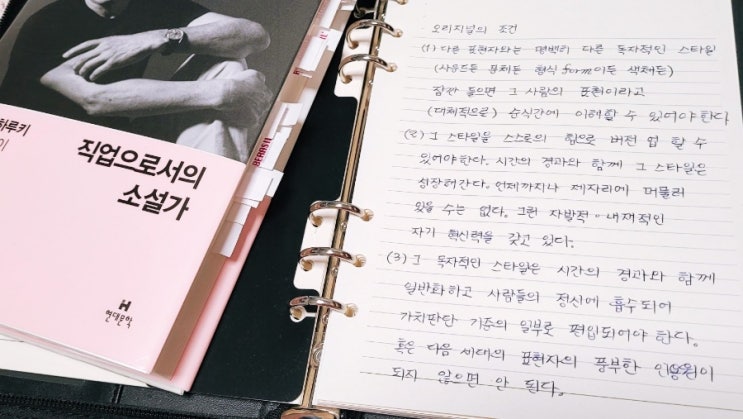 하루키
이
직업으로서의
소설가
현대문학
오리지널의 조건
(1) 다른 표현자와는 명백히 다른 독자적인 스타일
(사운드든 문체든 형식 form이든 색채든)
잠깐 들으면 그 사람의 표현이라고
(대체적으로) 순식간에 이해할 수 있어야 한다
(2) 그 스타일을 스스로의 힘으로 버전 업 할 수
있어야한다. 시간의 경과와 함께 그 스타일은
성장해간다. 언제까지나 제자리에 머물러
있을 수는 없다. 그런 자발적·내재적인
자기 혁신력을 갖고 있다.
(3) 그 독자적인 스타일은 시간의 경과와 함께
일반화하고 사람들의 정신에 흡수되어
가치판단 기준의 일부로 편입되어야 한다.
혹은 다음 세대의 표현자의 풍부한 인용원이
되지 않으면 안 된다.